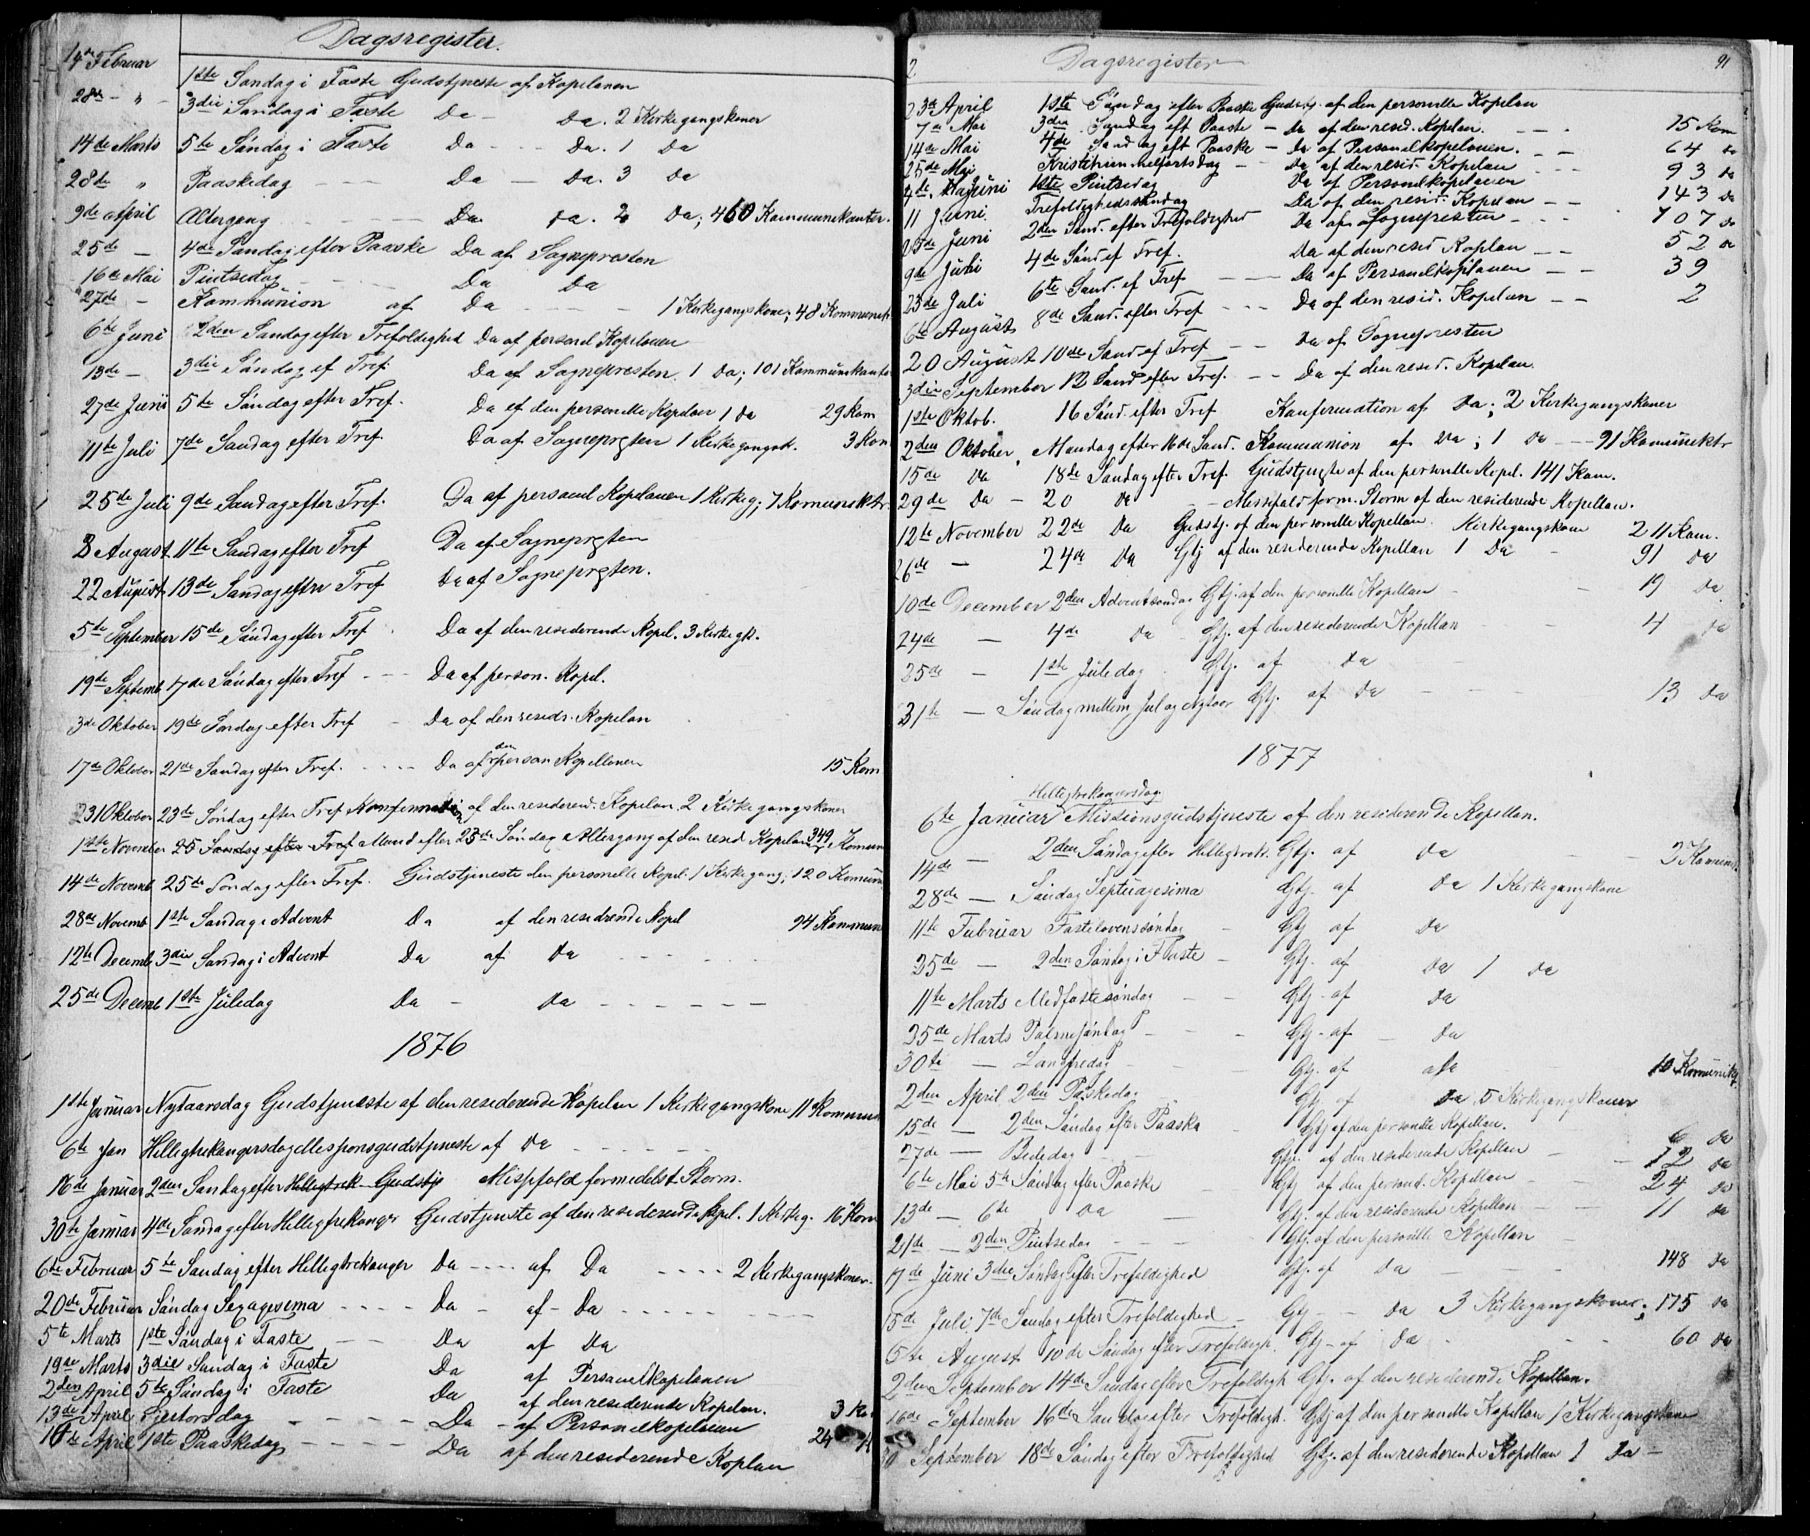 Dagsregister.
14de Februar 1ste Søndag i Faste Gudstjeneste af Kapelanen
28de - " - 3die Søndag i Faste Da - Da. 2 Kirkegangskoner
14de Marts 5te Søndag i Faste Da - - Da. 1 Da
28de " Paaskedag - - Da - Da. 3 Da
9de April Altergang - - Da Da. 2 Da; 460 Kommunikanter.
25de - 4de Søndag efter Paaske Da af Sognepresten
16de Mai Pintsedag Da Da
27de - Kommunion af Da - - - - 1 Kirkegangskone; 48 Kommunik
6te Juni 2den Søndag efter Trefoldighed Da af personel Kapelanen
13de - 3die Søndag ef Tref. Da af Sognepresten. 1 Da; 101 Kommunikanter
27de Juni 5te Søndag efter Tref. Da af den personelle Kapelan 1 Da 29 Kom
11te Juli 7de Søndag efter Tref. Da af Sognepresten 1 Kirkegangsk. 3 Kom
25de Juli 9de Søndag efter Tref. Da af personel Kapelanen 1 Kirkeg; 7 Komuniktr
8 August 11te Søndag efter Tref Da af Sognepresten
22 August 13de Søndag efter Tref Da af Sognepresten.
5te September 15de Søndag efter Tref. Da af den residerende Kapel. 3 Kirkegk.
19de Septemb 17de Søndag efter Tref - - - Da af person. Kapel.
3de Oktober 19de Søndag efter Tref - Da af den resids. Kapelan
17de Oktober 21de Søndag efter Tref. - - - - Da af den person Kapellanen 15 Kom
31 Oktober 23de Søndag efter Tref Konfirmation af den residerend. Kapelan. 2 Kirkegangskoner
1ste November 25 Søndag efter Tref Mand efter 23de Søndag Altergang af den resid Kapelan 349 Komun
14de Novemb 25de Søndag efter Tref. Gudstjeneste den personelle Kapel. 1 Kirkegang; 120 Komun
28de Novemb 1ste Søndag i Advent Da af den residrende Kapel 94 Kommun
12te Decemb 3die Søndag i Advent Da af Da - - - -
25de Decemb 1ste Juledag Da - Da - - - - - -
1876
1ste Januar Nytaarsdag Gudstjeneste af den residerende Kapelan 1 Kirkegangskone 11 Kommun
6te Jan Helligtrekongersdag Messjonsgudstjeneste af Da - - - -
16de Januar 2den Søndag efter Helligtrek Gudstje Misfald formedelst Storm.
30te Januar 4de Søndag efter Helligtrekonger Gudstjenste af den residerende Kapel. 1 Kirkeg. 16 Kom
6te Februar 5te Søndag efter Helligtrekonger Da - - - - af Da - - - - 2 Kirkegangskoner.
20de Februar Søndag Segagesema - - - - Da - af - Da - - - -
5te Marts 1ste Søndag i Faste - - Da af Da
19de Marts 3die Søndag i Faste Da af Personelkapelanen
2den April 5te Søndag i Faste Da af den residerende Kapelan. 3 Ko
13de April Skjertorsdag - - - - Da - af Personelkapelanen 24
16de April 1ste Paaskedag - - - - Da af den residerende Kaplan
2 Dagsregister 91
23de April 1ste Søndag efter Paaske Gudstj. af den personelle Kapelan
7de Mai 3die Søndag eft Paaste - Da af den resid. Kapelan. - - - 75 Kom
14de Mai 4de Søndag eft Paaske - Da af Personelkapelanen. - - 64 Da
25de Mai Kristi Himmelfartsdag - - Da af den resid. Kapelan - - 93 Da
4de Juni 1ste Pintsedag Da af Personelkapelanen 143 Da
11 Juni. Trefoldighedssøndag Da af den resid. Kapelan - - 107 Da
25de Juni 2den Sønd. efter Trefoldighed Da af Sognepresten - - - 52 Da
9de Juli 4de Sønd ef Tref. Da af den resid Kaplan - - 39
23de Juli 6te Sønd. ef Tref - - - Da af Personelkapelanen - - 2
6te August 8de Sønd. efter Tref - - - Da af den resid. Kapelan - -
20 August 10de Sønd af Tref - - Da af Sognepresten
3die September 12 Sønd efter Tref. - - Da af den resed. Kapelan.
1ste Oktob. 16 Sønd. efter Tref Konfirmation af Da; 2 Kirkegangskoner
2den Oktober. Mandag efter 16de Sønd. Kommunion af Da; 1 Da - - 91 Komunektr
15de Da 18de Søndag efter Tref. Gudstjeneste af den personelle Kapel. 141 Kom.
29de Da - 20 Da - Messfald form. Storm af den residerende Kapellan.
12te November 22de Da Gudstj. af den personelle Kapellan. Kirkegangskone 211 Kom.
26de - 24de Da Gtj af den residerende Kapellan 1 Da - 91 Da
10de December 2den Adventsøndag Gtj. af den personelle Kapellan - - 19 Da
24de - 4de Da Gtj. af den residerende Kapellan - - 4 Da
25de - 1ste Juledag. Gtj. af Da -
31te - Søndag mellem Jul og Nytaar Gtj. af Da - - - 13 Da
1877
6te Januar Helligtrekonersdag. Missionsgudstjeneste af den residerende Kapellan.
14de - 2den Søndag efter Helligtrek. Gtj. af Da - - 2 Komun
28de - Søndag Septuagesima Gtj. af Da 1 Kirkegangskone
11te Februar Fastelavenssøndag - Gtj af Da
25de - 2den Søndag i Faste - Gtj. af Da 1 Da
11te Marts Medfastesøndag - - Gtj. af Da
25de Marts Palmesøndag - - - Gtj - af - Da
30te - Langfredag Gtj. af Da 10 Komunikt.
2den April 2den Paaskedag - Gtj af Da. 5 Kirkegangskoner
15de - 2den Søndag efter Paaske - Gtj af den personelle Kapellan. 6 Da
27de - Bededag - - Gtj. af den residerende Kapellan - - 12 Da
6te Mai 5te Søndag efter Paaske - Gtj af den personel. Kapellan - - 24 Da
13de - 6te Da - Gtj. af den residerende Kapellan - - 11 Da
21de - 2den Pintsedag - - - Gtj. af den personelle Kapellan -
17de Juni 3die Søndag efter Trefoldighed Gtj. af Da - - - 148 Da
5de Juli 7de Søndag efter Trefoldighed Gtj - - Da 3 Kirkegangskoner; 175 Da
5te August 10de Søndag efter Trefoldigh. Gtj - af Da - - - 60 Da
2den September 14de Søndag efter Trefoldigh Gtj. af den residerende Kapellan.
16de September 16de Søndag efter Trefoldigh. Gtj af den personelle Kapellan 1 Kirkegangskone
30 September 18de Søndag efter Trefoldighed Gtj. af den residerende Kapellan 1 Da -